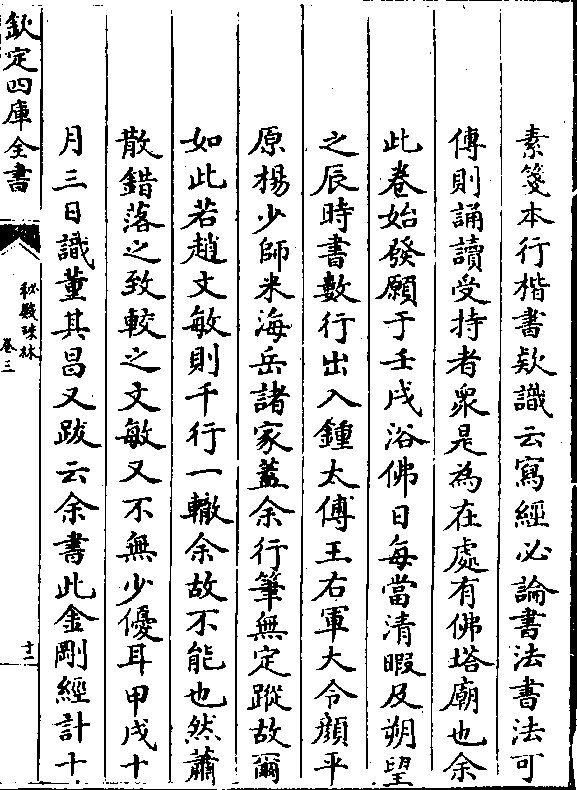 素箋本行楷書款識云寫經必論書法書法可
傳則誦讀受持者衆是為在處有佛塔廟也余
此卷始發願于壬戌浴佛日每當清暇及朔望
之辰時書數行出入鍾太傅王右軍大令顔平
原楊少師米海岳諸家蓋余行筆無定蹤故爾
如此若趙文敏則千行一轍余故不能也然蕭
散錯落之致較之文敏又不無少優耳甲戌十
月三日識董其昌又跋云余書此金剛經計十
欽定四庫全書
秘殿珠林
卷三
十二